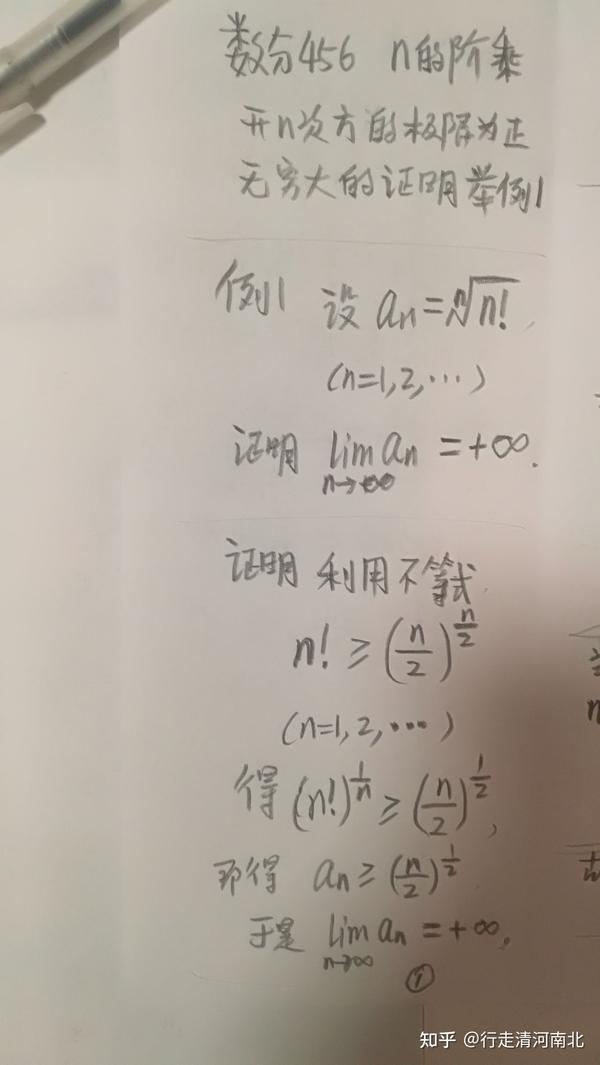 数分456 n的阶乘
开n次方的极限为正
无穷大的证明举例1
例1 设 aₙ=ⁿ√n!,
(n=1,2,⋯)
证明 lim aₙ =+∞.
n→∞
证明 利用不等式
n! ≥ (n/2)^(n/2)
(n=1,2,⋯)
得 (n!)^(1/n) ≥ (n/2)^(1/2),
即得 aₙ ≥ (n/2)^(1/2)
于是 lim aₙ = +∞,
n→∞
①
知乎 @行走清河南北